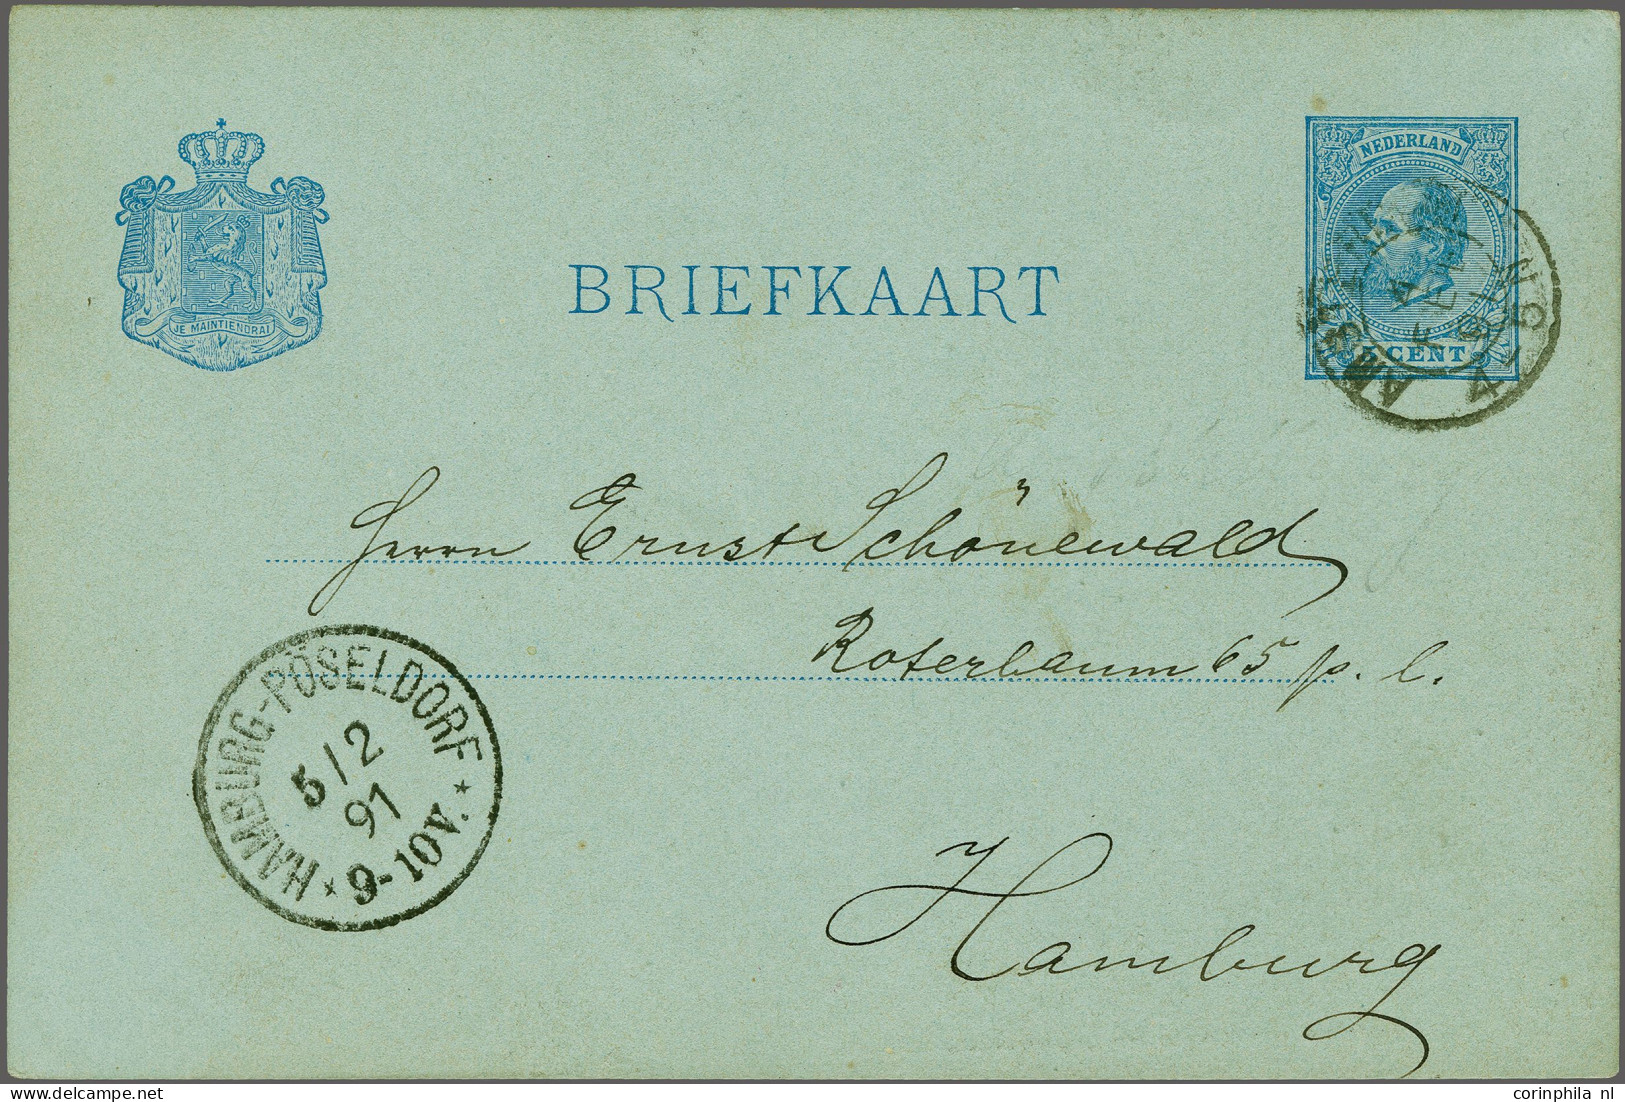 NEDERLAND
JE MAINTIENDRAI
BRIEFKAART
5 CENT
Herrn Ernst Schönewald
Roterbaum 65 p. l.
HAMBURG-PÖSELDORF
5/2
91
* 9-10V. *
Hamburg
corinphila nl